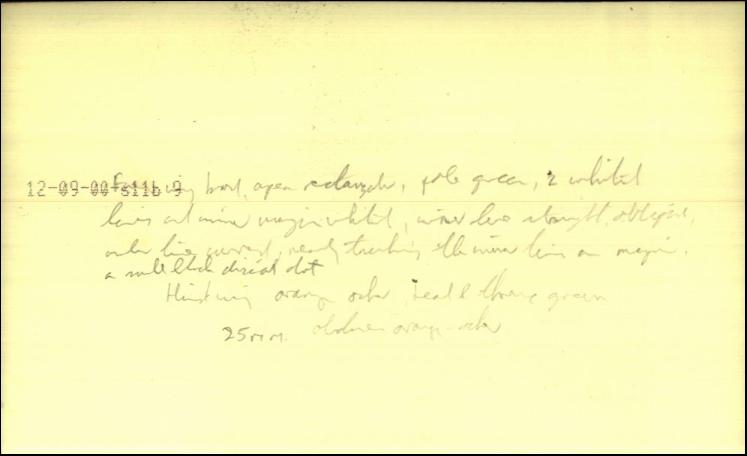 12-09-00 s11b 9
Forewing broad, apex rectangular, pale green, 2 whitish
lines and inner margin whitish, inner line straight, oblique,
outer line curved, nearly touching the inner line on margin.
a small black discal dot
Hindwing orange ochre, head & thorax green
25 mm. abdomen orange-ochre